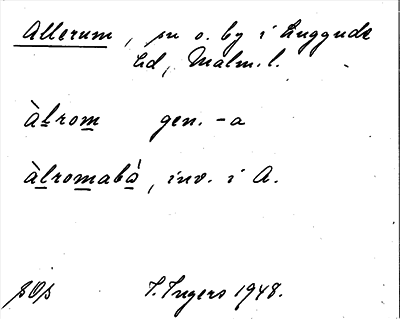 Allerum, sn o. by i Luggude
hd, Malm. l.
àlrom gen. -a
àlromabò, inv. i A.
I. Ingers 1948.